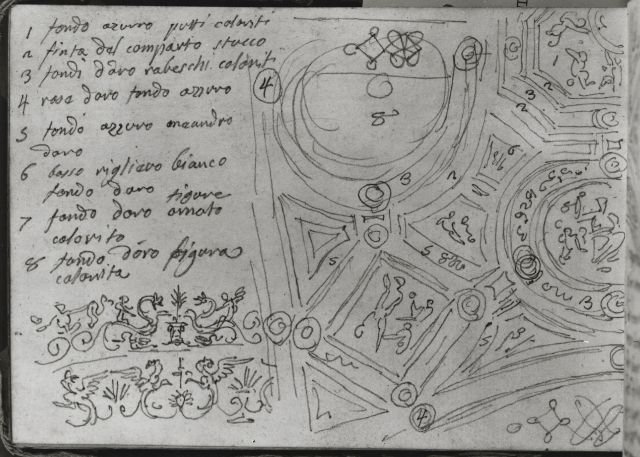 1 fondo azurro putti coloriti
2 tinta del comparto stucco
3 fondi d'oro rabeschi coloriti
4 rose d'oro fondo azurro
5 fondo azzuro meandro
d'oro
6 basso riglievo bianco
fondo d'oro figure
7 fondo d'oro ornato
colorito
8 fondo d'oro figura
colorita
4
8
3
2
3
2
6
5
5
3
5
4